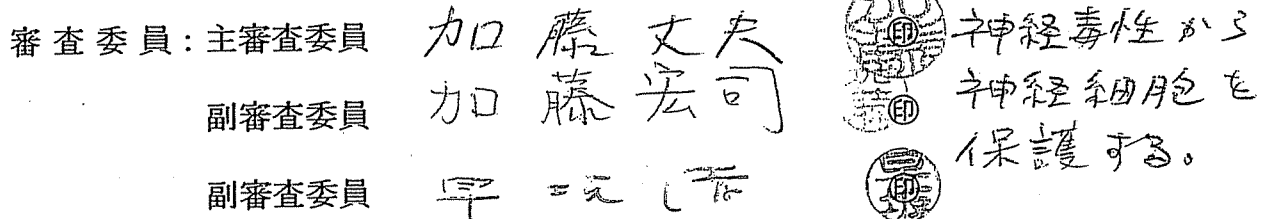 審査委員：主審査委員 加藤丈夫 ㊞
副審査委員 加藤宏司 ㊞
副審査委員 ㊞
神経毒性から
神経細胞を
保護する。